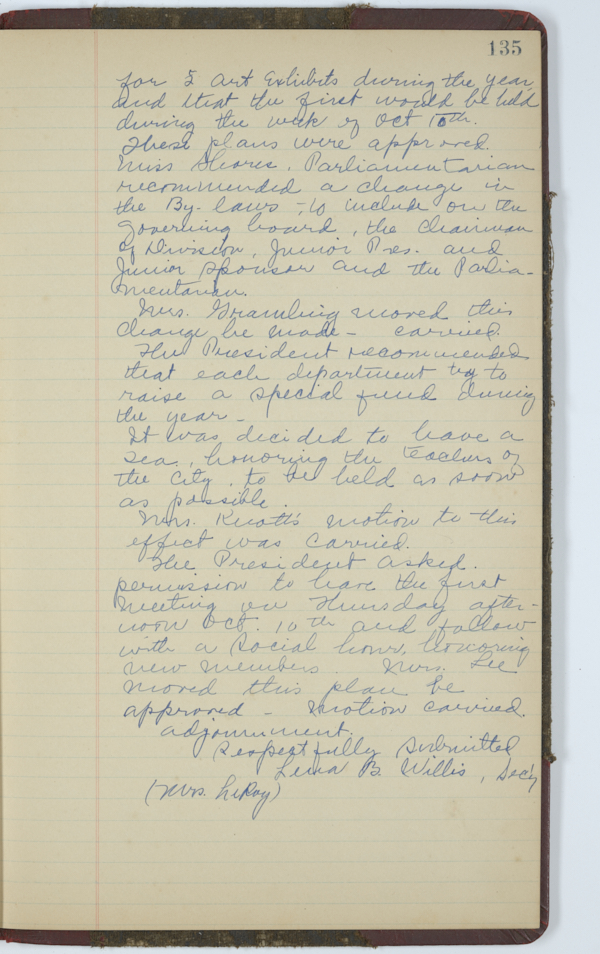 135
for 5 Art Exhibits during the year
and that the first would be held
during the week of Oct 10th.
These plans were approved.
Miss Shores, Parliamentarian
recommended a change in
the By-laws - to include on the
governing board, the Chairman
of Division, Junior Pres. and
Junior Sponsor and the Parlia-
mentarian.
Mrs. Grambling moved this
change be made - carried.
The President recommended
that each department try to
raise a special fund during
the year -
It was decided to have a
tea, honoring the Teachers of
the City, to be held as soon
as possible.
Mrs. Knott's motion to this
effect was carried.
The President asked
permission to have the first
meeting on Thursday after-
noon Oct. 10th and follow
with a social hour, honoring
new members. Mrs. Lee
moved this plan be
approved - Motion carried.
adjournment.
Respectfully Submitted
Lena B. Willis, Sec'y
(Mrs. LeRoy)